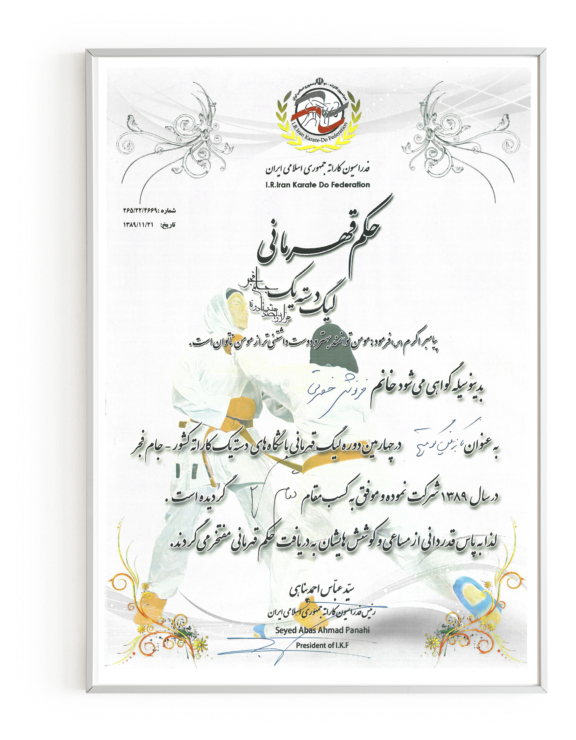 I.R.Iran Karate-Do Federation
فدراسیون کاراته جمهوری اسلامی ایران
I.R.Iran Karate Do Federation
شماره: ۲۶۵/۲۲/۴۶۶۹
تاریخ: ۱۳۸۹/۱۱/۲۱
حکم قهرمانی
لیگ دسته یک
پیامبر اکرم (ص) فرمود: مومن توانمند بهتر و دوست داشتنی تر از مومن ناتوان است.
بدینوسیله گواهی می شود خانم
به عنوان در چهارمین دوره لیگ قهرمانی باشگاه های دسته یک کاراته کشور - جام فجر
در سال ۱۳۸۹ شرکت نموده و موفق به کسب مقام گردیده است.
لذا به پاس قدردانی از مساعی و کوشش هایشان به دریافت حکم قهرمانی مفتخر می گردند.
سید عباس احمد پناهی
رئیس فدراسیون کاراته جمهوری اسلامی ایران
Seyed Abas Ahmad Panahi
President of I.K.F